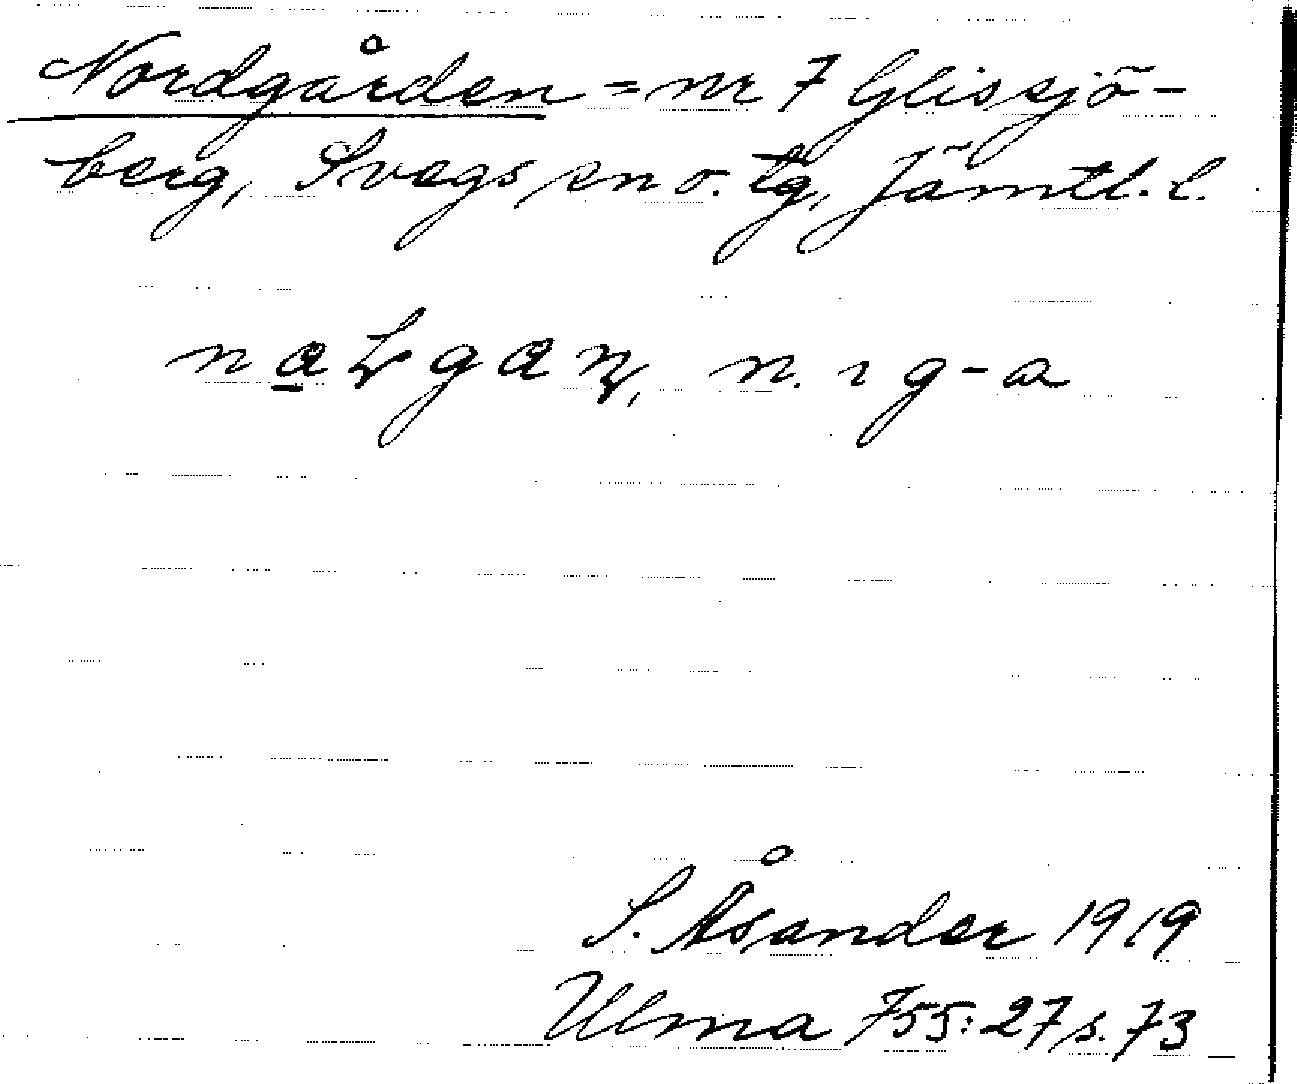 Nordgården = nr 7 Glissjö-
berg, Svegs sn o. tg, Jämtl. l.
n. ɿ g-a
S. Åsander 1919
Ulma 755:27 s. 73